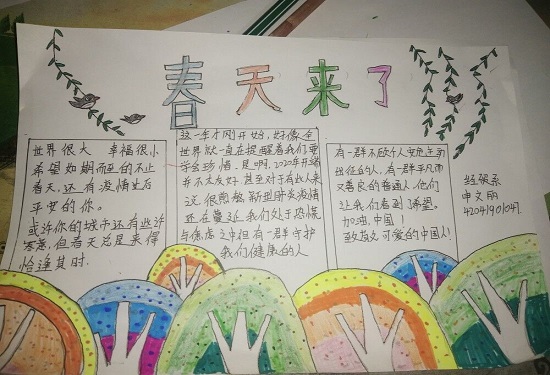 春天来了
世界很大 幸福很小
希望如期而至的不止
春天,还有疫情过后
平安的你。
或许你的城市还有些许
寒意,但春天总是来得
恰逢其时.
这一年才刚开始,好像全
世界就一直在提醒着我们要
学会珍惜.是啊,2020年开端
并不太友好,甚至对于有些人来
说,很煎熬,新型肺炎疫情
还在蔓延,我们处于恐慌
与焦虑之中但有一群守护
我们健康的人
有一群不顾个人安危
担任的人,有一群平凡而
又善良的普通人,他们
让我们看到了希望。
加油,中国!
致敬可爱的中国人!
经贸系
申文丽